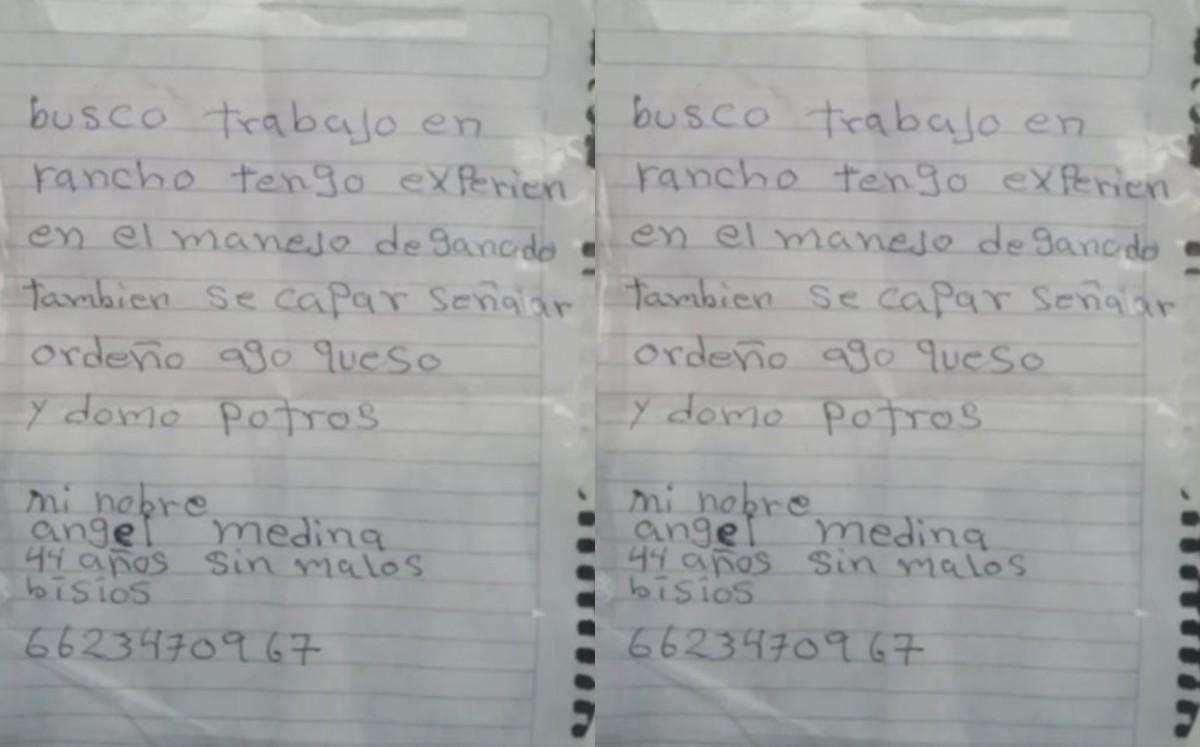 busco trabajo en
rancho tengo experien
en el manejo de ganado
tambien se capar señalar
ordeño ago queso
y domo potros
mi nobre
angel medina
44 años sin malos
bisios
6623470967
busco trabajo en
rancho tengo experien
en el manejo de ganado
tambien se capar señalar
ordeño ago queso
y domo potros
mi nobre
angel medina
44 años sin malos
bisios
6623470967